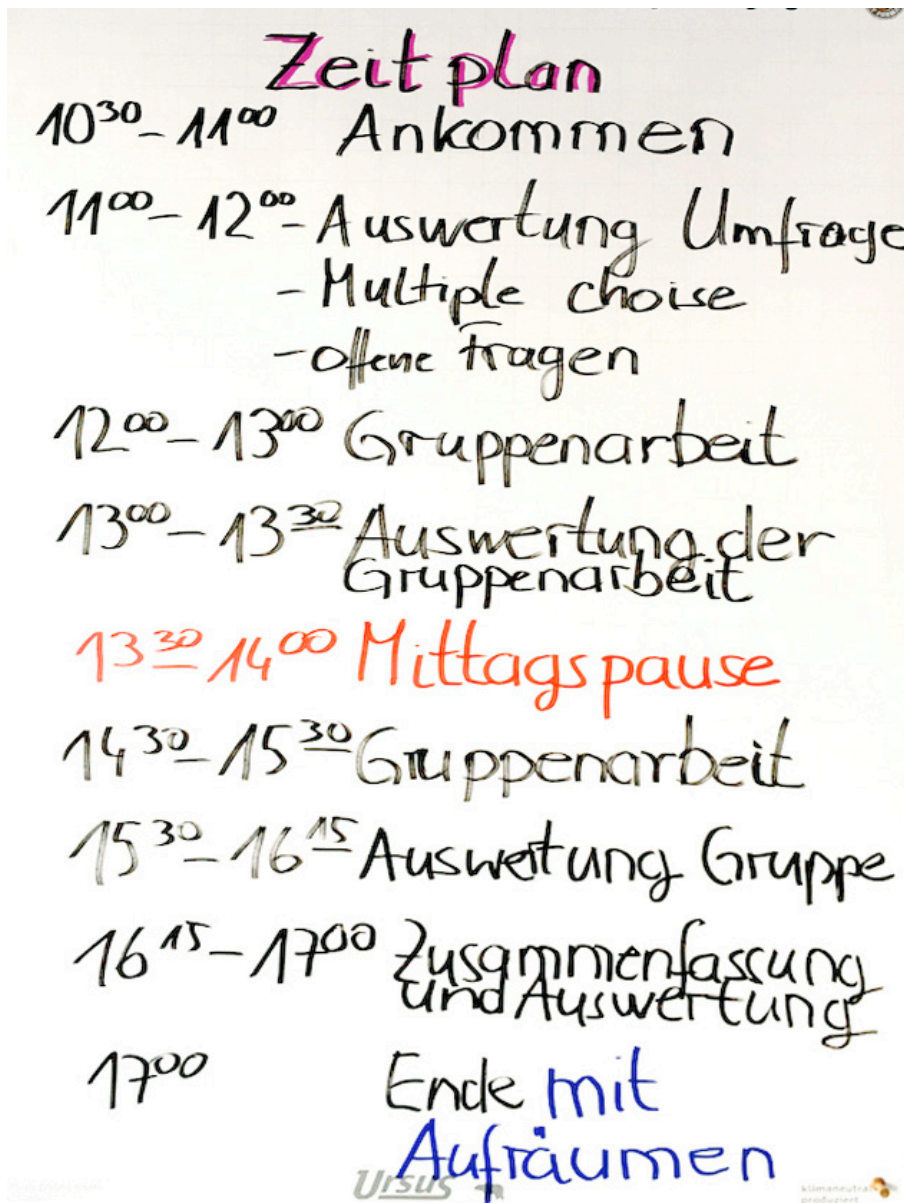 Zeitplan
10³⁰ - 11⁰⁰ Ankommen
11⁰⁰ - 12⁰⁰ - Auswertung Umfrage
- Multiple choise
- offene Fragen
12⁰⁰ - 13⁰⁰ Gruppenarbeit
13⁰⁰ - 13³⁰ Auswertung der
Gruppenarbeit
13³⁰ 14⁰⁰ Mittagspause
14³⁰ - 15³⁰ Gruppenarbeit
15³⁰ - 16¹⁵ Auswertung Gruppe
16¹⁵ - 17⁰⁰ Zusammenfassung
und Auswertung
17⁰⁰ Ende mit
Aufräumen
Ursus
klimaneutral
produziert